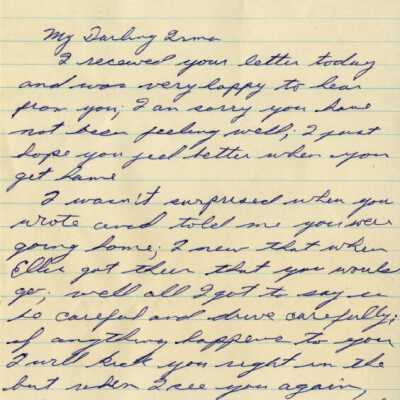 My Darling Irma
I receved your letter today
and was very happy to hear
from you; I am sorry you have
not been feeling well; I just
hope you feel better when you
get home
I wasn't surprised when you
wrote and told me you were
going home; I new that when
Ellis got their that you would
go; well all I got to say is
so careful and drive carefully;
if anything happens to you
I will kick you right in the
but when I see you again,